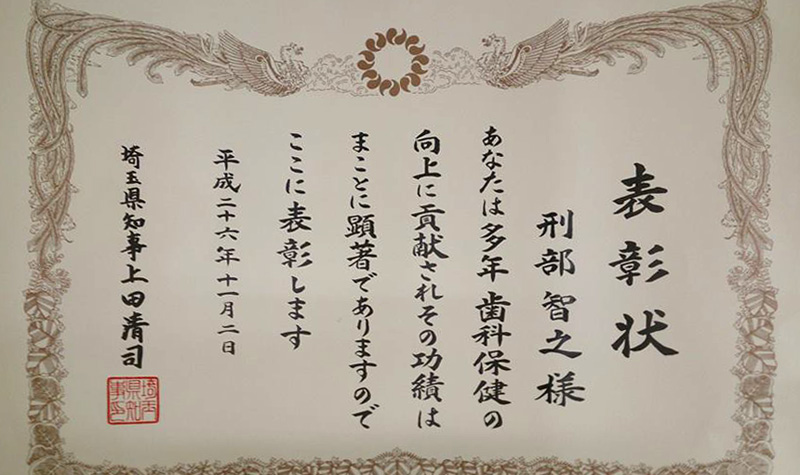 表彰状
刑部智之様
あなたは多年歯科保健の
向上に貢献されその功績は
まことに顕著でありますので
ここに表彰します
平成二十六年十一月二日
埼玉県知事上田清司
埼玉県知事印